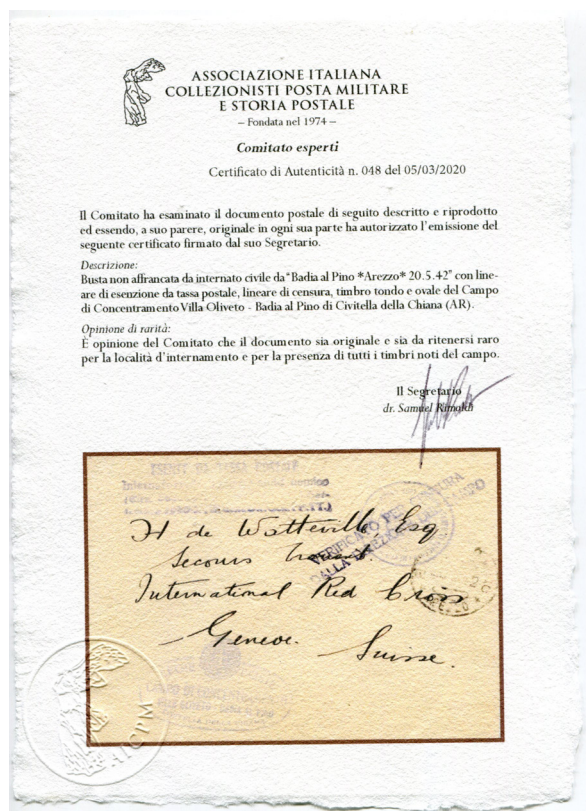 ASSOCIAZIONE ITALIANA
COLLEZIONISTI POSTA MILITARE
E STORIA POSTALE
– Fondata nel 1974 –
Comitato esperti
Certificato di Autenticità n. 048 del 05/03/2020
Il Comitato ha esaminato il documento postale di seguito descritto e riprodotto
ed essendo, a suo parere, originale in ogni sua parte ha autorizzato l'emissione del
seguente certificato firmato dal suo Segretario.
Descrizione:
Busta non affrancata da internato civile da "Badia al Pino *Arezzo* 20.5.42" con line-
are di esenzione da tassa postale, lineare di censura, timbro tondo e ovale del Campo
di Concentramento Villa Oliveto - Badia al Pino di Civitella della Chiana (AR).
Opinione di rarità:
È opinione del Comitato che il documento sia originale e sia da ritenersi raro
per la località d'internamento e per la presenza di tutti i timbri noti del campo.
Il Segretario
dr. Samuel Rimoldi
VERIFICATO PER CENSURA
DALLA DIREZIONE CAMPO
H de Watteville, Esq
Secours
International Red Cross
Geneve.
Suisse.
AICPM